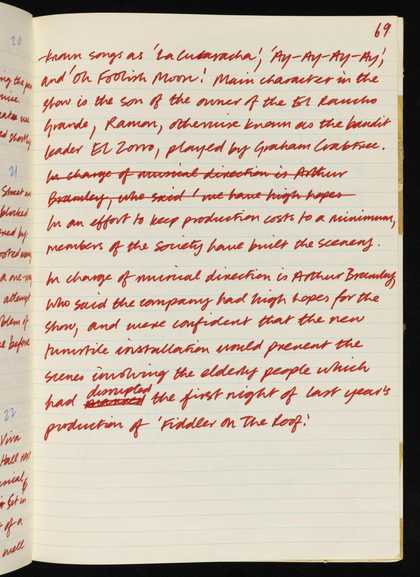 69
known songs as 'La Cucaracha', 'Ay-Ay-Ay-Ay',
and 'Oh Foolish Moon'. Main character in the
show is the son of the owner of the El Rancho
Grande, Ramon, otherwise known as the bandit
leader El Zorro, played by Graham Crabtree.
In charge of musical direction is Arthur
Bramley, who said 'we have high hopes
In an effort to keep production costs to a minimum,
members of the Society have built the scenery.
In charge of musical direction is Arthur Bramley,
who said the company had high hopes for the
show, and were confident that the new
turnstile installation would prevent the
scenes involving the elderly people which
had disrupted the first night of last year's
production of 'Fiddler on The Roof.'
20
21
Street
blocked
attempt
before
22
Viva
Hall
Set in
of a
well